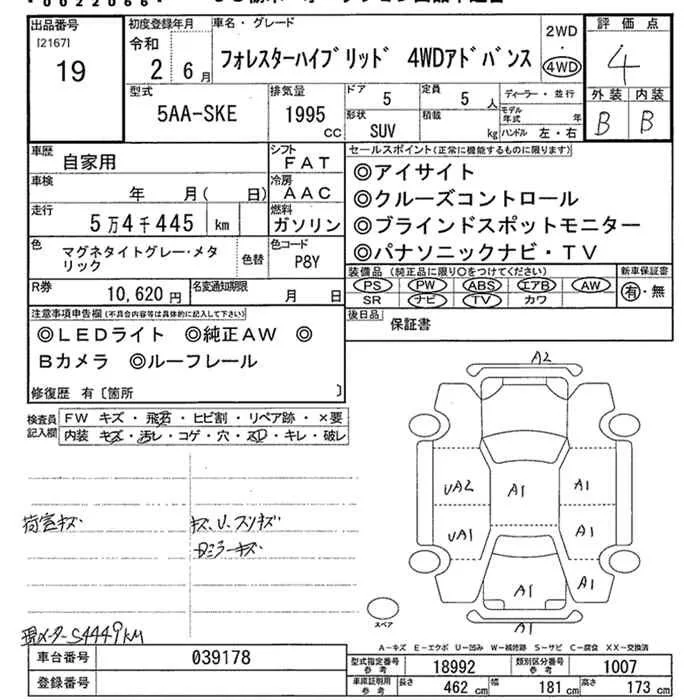 0022066
出品番号
[2167]
19
初度登録年月
令和
2 6月
車名・グレード
フォレスターハイブリッド 4WDアドバンス
2WD
・
4WD
評価点
4
外装 内装
B B
型式
5AA-SKE
排気量
1995
CC
ドア
5
定員
5 人
形状
SUV
積載
kg
ディーラー・並行
モデル
年式 年
ハンドル 左・右
車歴
自家用
シフト
FAT
車検
年 月( 日)
冷房
AAC
走行
5万4千445 km
燃料
ガソリン
色
マグネタイトグレー・メタ
リック
色替
色コード
P8Y
R券
10,620 円
名変通知期限
月 日
セールスポイント(正常に機能するものに限ります)
◎アイサイト
◎クルーズコントロール
◎ブラインドスポットモニター
◎パナソニックナビ・TV
装備品 (純正品に限り○をつけてください)
PS PW ABS エアB AW
SR ナビ TV カワ
新車保証書
有・無
後日品
保証書
注意事項申告欄(不具合内容等は具体的に記入して下さい)
◎LEDライト ◎純正AW ◎
Bカメラ ◎ルーフレール
修復歴 有〔箇所 〕
検査員
記入欄
FW キズ・飛石・ヒビ割・リペア跡・×要
内装 キズ・汚レ・コゲ・穴・スレ・キレ・破レ
荷室キズ
キズ、U、スリキズ
Dミラーキズ
現メーター54449KM
A2
UA2
A1
A1
UA1
A1
A1
A1
A1
スペア
A-キズ E-エクボ U-凹み W-補修跡 S-サビ C-腐食 XX-交換済
車台番号
039178
登録番号
型式指定番号
参考
18992
類別区分番号
参考
1007
車庫証明用
参考
長さ
462 cm
幅
181 cm
高さ
173 cm